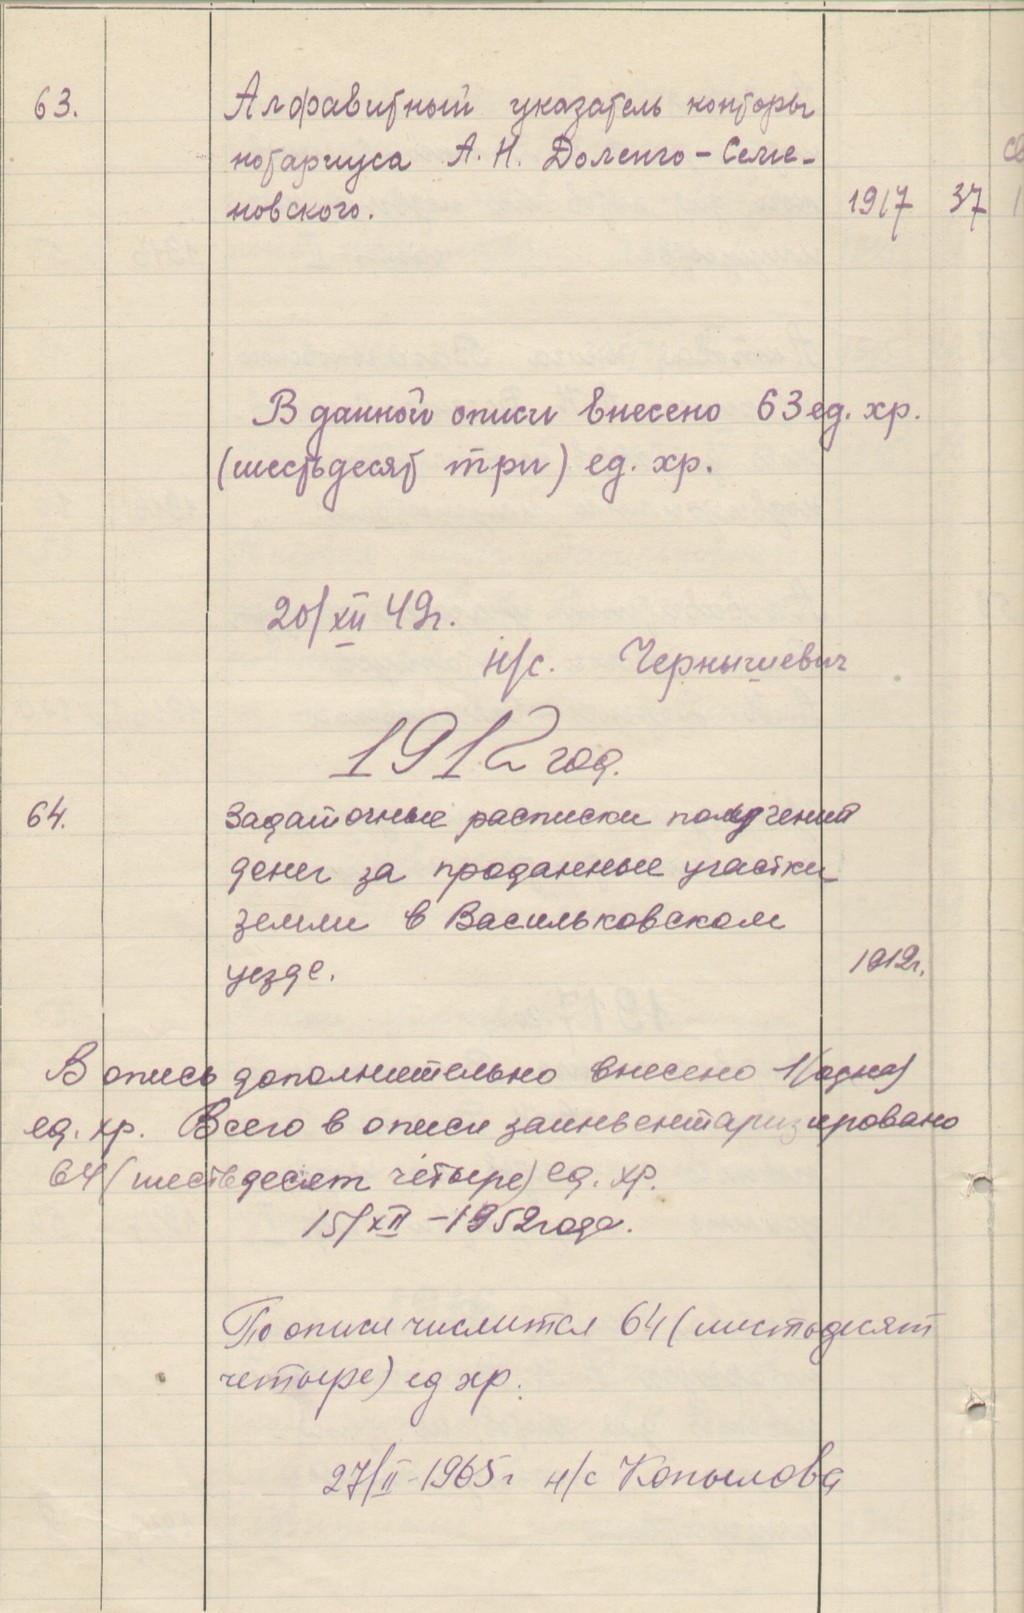 63. Алфавитный указатель конторы
нотариуса А. Н. Доленго-Семе-
новского. 1917 37
В данной описи внесено 63 ед. хр.
(шестьдесят три) ед. хр.
20/XII 49г.
н/с. Чернышевич
1912 год.
64. Задаточные расписки получения
денег за проданные участки
земли в Васильковском
уезде. 1912г.
В опись дополнительно внесено 1 (одна)
ед. хр. Всего в описи заинвентаризировано
64 (шестьдесят четыре) ед. хр.
15/XII - 1952 года.
По описи числится 64 (шестьдесят
четыре) ед хр.
27/II-1965г н/с Копылова